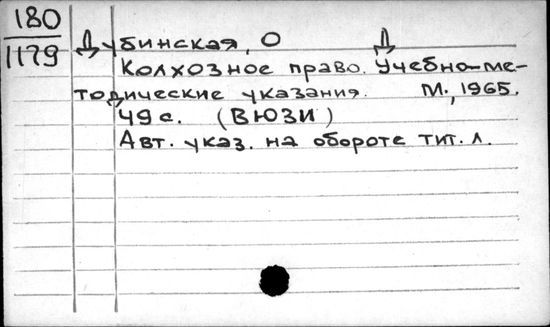 180
1179
Дубинская, О Д
Колхозное право. Учебно-ме-
тодические указания. М., 1965.
49 с. (ВЮЗИ)
Авт. указ. на обороте тит. л.